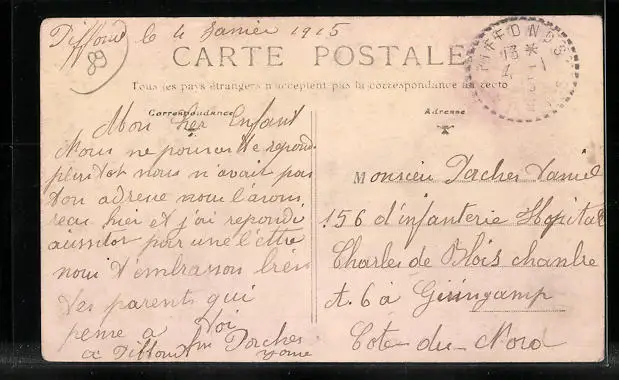 Piffond le 4 Janvier 1915
89
CARTE POSTALE
PIFFONDS
13 *
4 - 1
Tous les pays étrangers n'acceptent pas la correspondance au recto
Correspondance
Mon cher Enfant
Nous ne pouvont te repond
plustot nous n'avait pas
ton adresse nous l'avons
recu hier et j'ai repondu
aussitot par une l'ettre
nous t'embrasson bien
Tes parents qui
pense a toi
a Piffond Yonne
Adresse
Monsieur Daniel
156 d'infanterie Hopital
Charles de Blois chambre
A. 6 à Guingamp
Cote-du-Nord